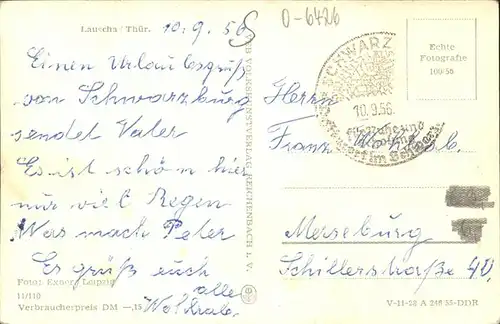 Lauscha/Thür. 10.9.56
D-6426
Einen Urlaubsgruß
von Schwarzburg
sendet Vater
Es ist schön hier
nur viel Regen
Was mach Peter
Es grüß euch
alle
Foto: Exner, Leipzig
11/110
Verbraucherpreis DM —,15
VEB VOLKSKUNSTVERLAG REICHENBACH I. V.
SCHWARZ
10.9.56
für Ruhe und
Echte
Fotografie
100/56
Herrn
Franz
Merseburg
Schillerstraße
V-11-28 A 246 55-DDR